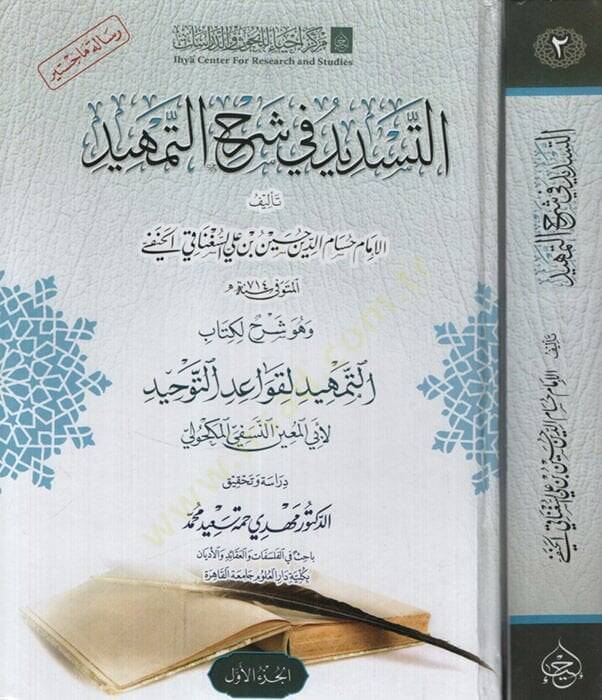 مركز إحياء للبحوث والدراسات
Ihyā Center For Research and Studies
رسالة ماجستير
التَّسْدِيدُ فِي شَرْحِ التَّمْهِيدِ
تأليف
الإمام حسام الدين حسين بن علي السغناقي الحنفي
المتوفى سنة ٧١٤هـ
وهو شرح لكتاب
التمهيد لقواعد التوحيد
لأبي المعين النسفي المكحولي
دراسة وتحقيق
الدكتور مهدي حمة سعيد محمد
باحث في الفلسفات والعقائد والأديان
بكلية دار العلوم جامعة القاهرة
الجزء الأول
٢
التسديد في شرح التمهيد
تأليف
الإمام حسام الدين حسين بن علي السغناقي الحنفي
إحياء